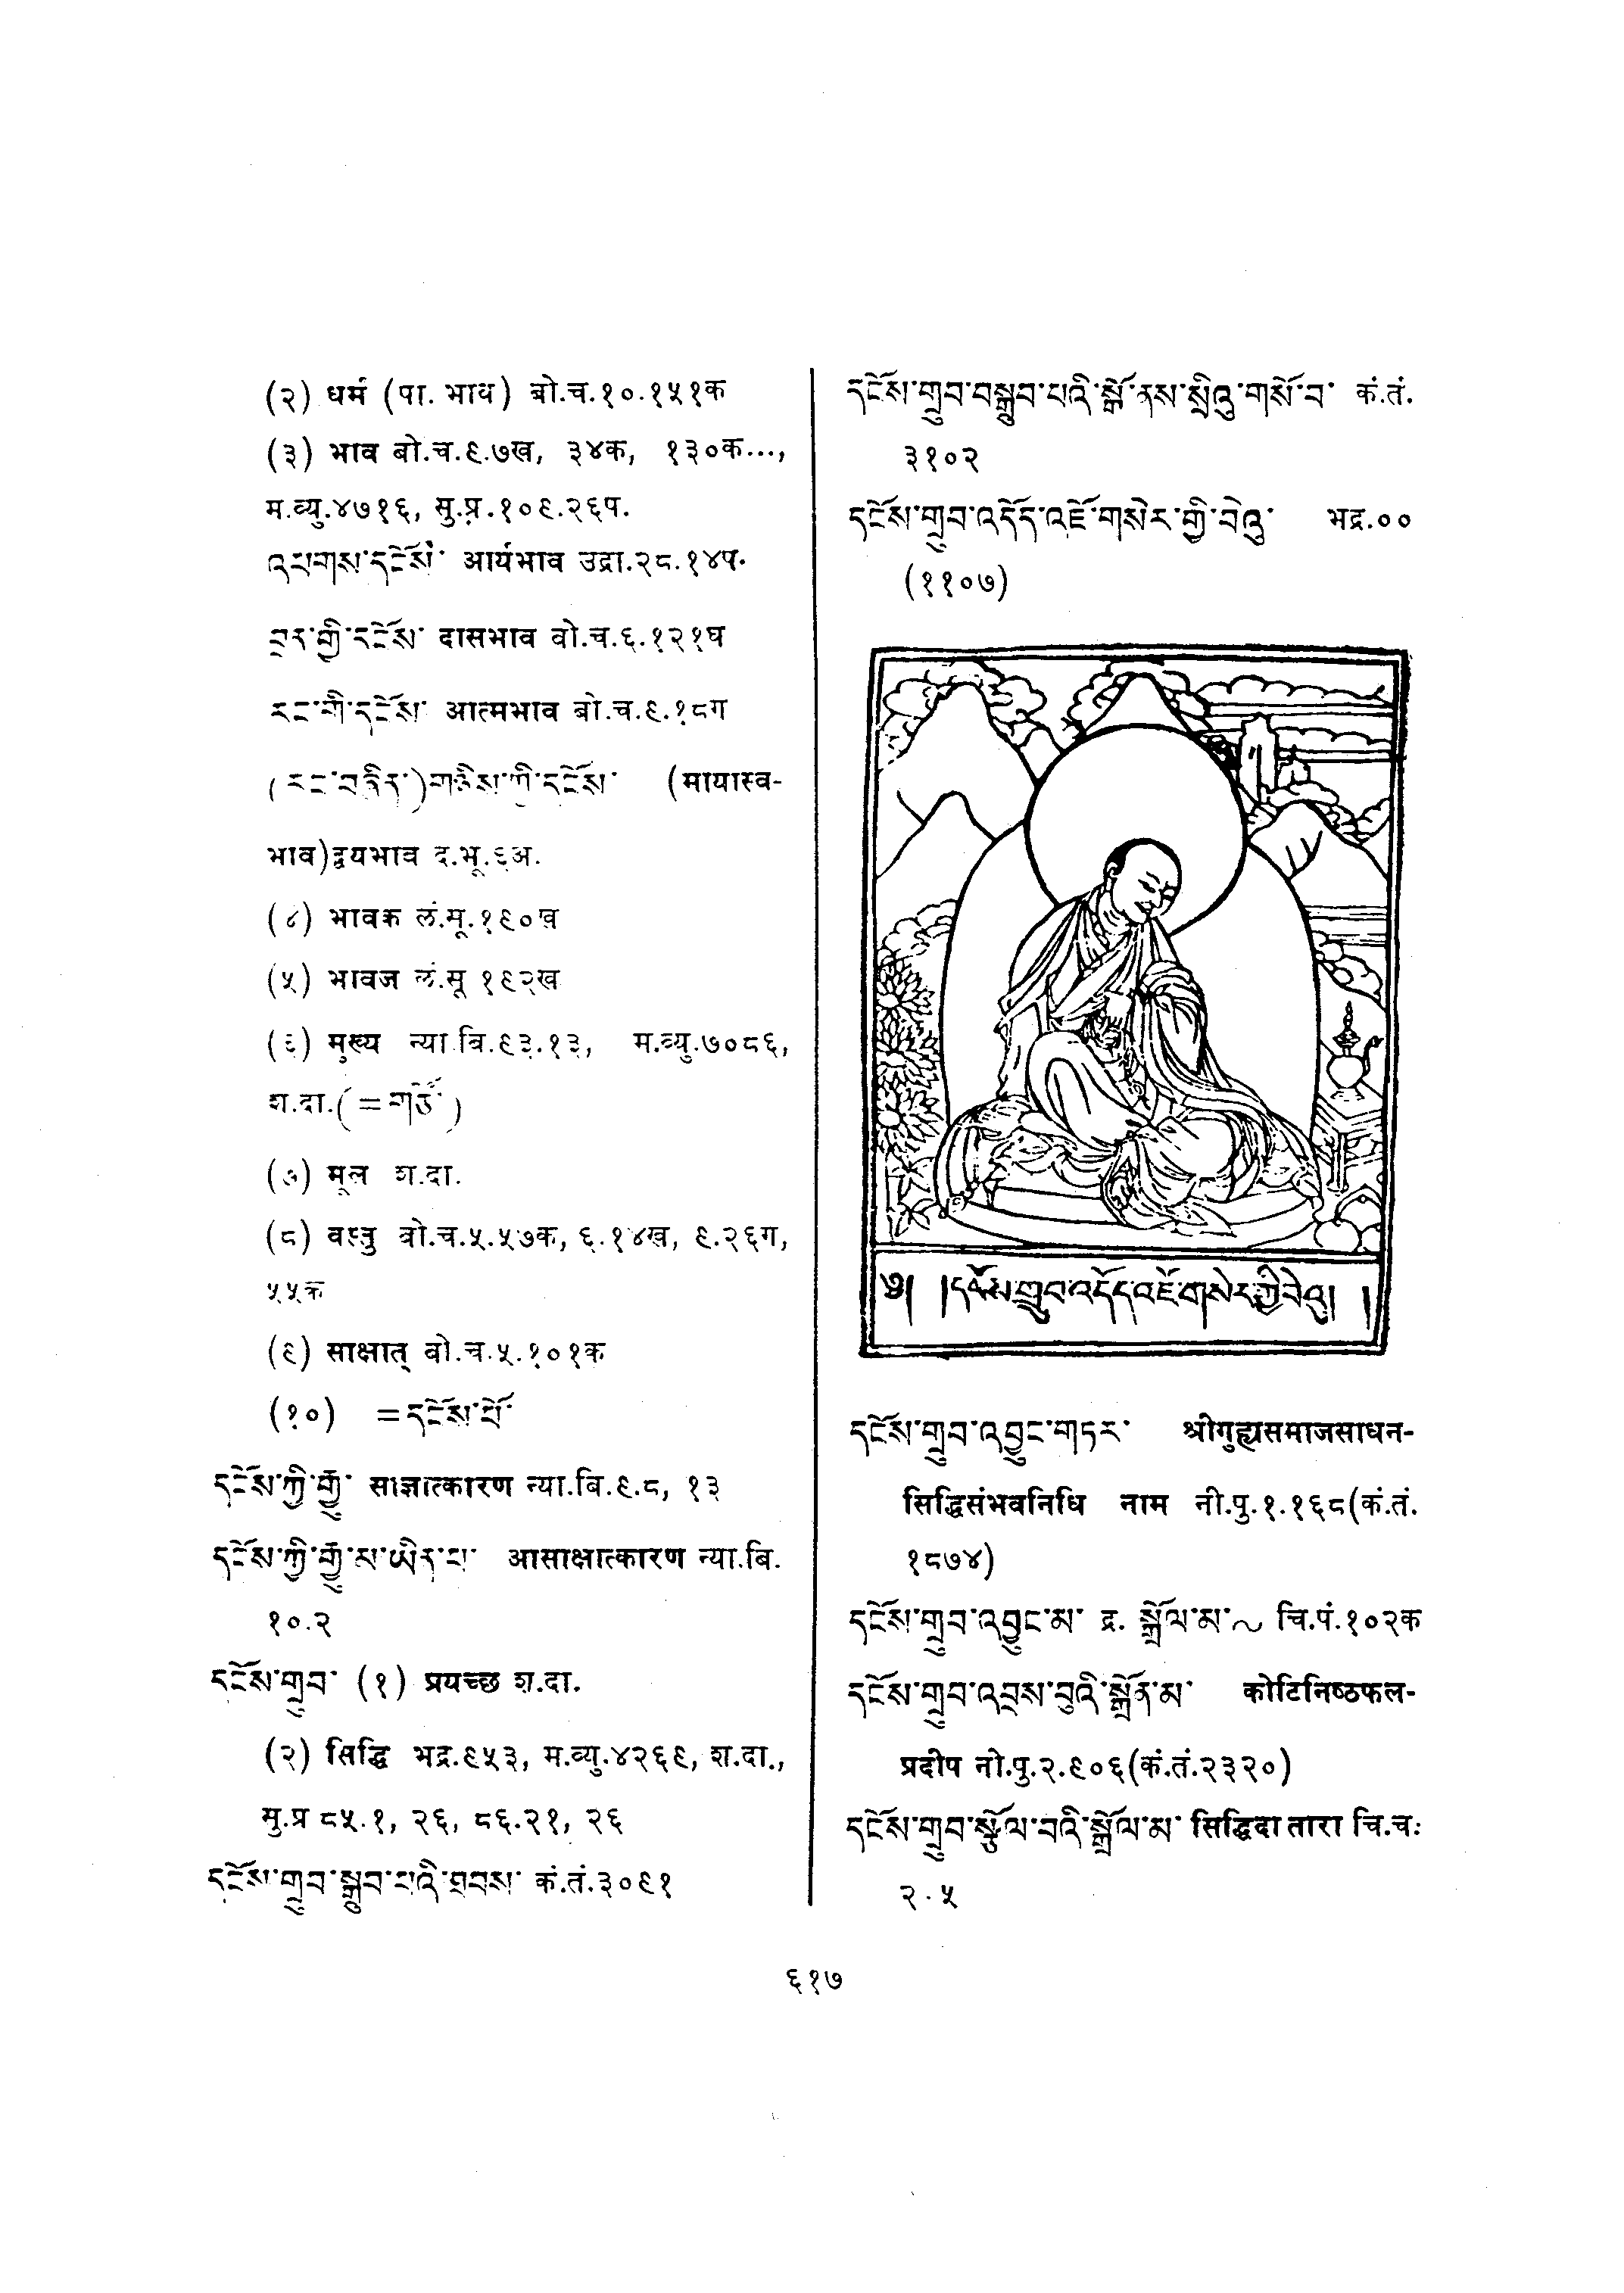 (२) धर्म (पा. भाव) बो.च.१०.१५१क
(३) भाव बो.च.९.७ख, ३४क, १३०क...,
म.व्यु.४७१६, सु.प्र.१०९.२६प.
འཕགས་དངོས་ आर्यभाव उद्रा.२८.१४प.
བྲན་གྱི་དངོས་ दासभाव बो.च.६.१२१घ
རང་གི་དངོས་ आत्मभाव बो.च.९.१८ग
(རང་བཞིན་)གཉིས་ཀྱི་དངོས་ (मायास्व-
भाव)द्वयभाव द.भू.६अ.
(४) भावक लं.सू.१९०ख
(५) भावज लं.सू १९२ख
(६) मुख्य न्या.बि.९३.१३, म.व्यु.७०८६,
श.दा.(=གཙོ་)
(७) मूल श.दा.
(८) वस्तु बो.च.५.५७क, ६.१४ख, ९.२६ग,
५५क
(९) साक्षात् बो.च.५.१०१क
(१०) =དངོས་པོ་
དངོས་ཀྱི་རྒྱུ་ साज्ञात्कारण न्या.बि.९.८, १३
དངོས་ཀྱི་རྒྱུ་མ་ཡིན་པ་ आसाक्षात्कारण न्या.बि.
१०.२
དངོས་གྲུབ་ (१) प्रयच्छ श.दा.
(२) सिद्धि भद्र.९५३, म.व्यु.४२६९, श.दा.,
सु.प्र ८५.१, २६, ८६.२१, २६
དངོས་གྲུབ་སྒྲུབ་པའི་ཐབས་ कं.तं.३०९१
དངོས་གྲུབ་བསྒྲུབ་པའི་སྒོ་ནས་སྲིའུ་གསོ་བ་ कं.तं.
३१०२
དངོས་གྲུབ་འདོད་འཇོ་གསེར་གྱི་བེའུ་ भद्र.००
(११०७)
༧། །དངོས་གྲུབ་འདོད་འཇོ་གསེར་གྱི་བེའུ། །
དངོས་གྲུབ་འབྱུང་གཏར་ श्रीगुह्यसमाजसाधन-
सिद्धिसंभवनिधि नाम नी.पु.१.१६८(कं.तं.
१८७४)
དངོས་གྲུབ་འབྱུང་མ་ द्र. སྒྲོལ་མ་~ चि.पं.१०२क
དངོས་གྲུབ་འབྲས་བུའི་སྒྲོན་མ་ कोटिनिष्ठफल-
प्रदीप नो.पु.२.९०६(कं.तं.२३२०)
དངོས་གྲུབ་སྩོལ་བའི་སྒྲོལ་མ་ सिद्धिदा तारा चि.च.
२.५
६१७